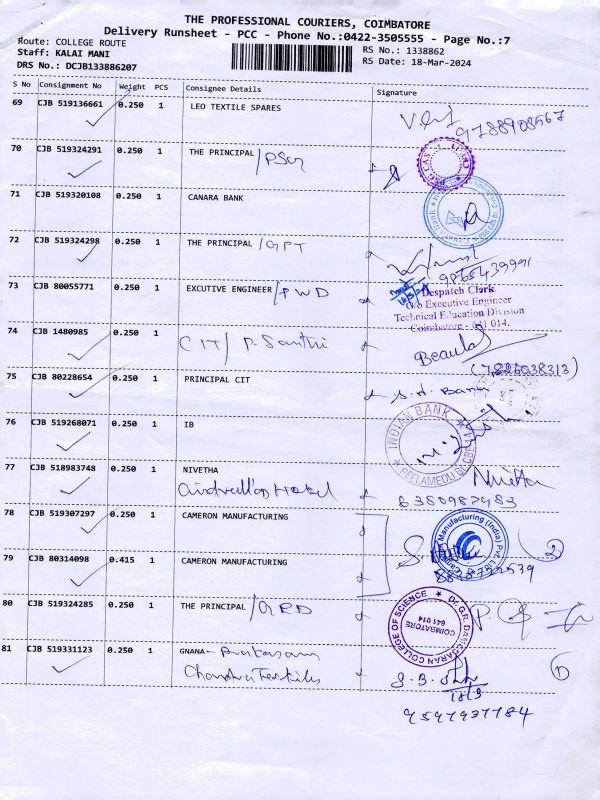 THE PROFESSIONAL COURIERS, COIMBATORE
Delivery Runsheet - PCC - Phone No.:0422-3505555 - Page No.:7
Route: COLLEGE ROUTE
Staff: KALAI MANI
DRS No.: DCJB133886207
RS No.: 1338862
RS Date: 18-Mar-2024
S No Consignment No Weight PCS Consignee Details Signature
69 CJB 519136661 0.250 1 LEO TEXTILE SPARES
9788908567
70 CJB 519324291 0.250 1 THE PRINCIPAL /PSG
71 CJB 519320108 0.250 1 CANARA BANK
72 CJB 519324298 0.250 1 THE PRINCIPAL /GPT
9865439991
73 CJB 80055771 0.250 1 EXCUTIVE ENGINEER /PWD
Despatch Clerk
O/o Executive Engineer
Technical Education Division
Coimbatore - 641 014.
74 CJB 1480985 0.250 1 CIT/ P. Santhi
Beaula
(7896038313)
75 CJB 80228654 0.250 1 PRINCIPAL CIT
S.H. Banu
76 CJB 519268071 0.250 1 IB
INDIAN BANK
77 CJB 518983748 0.250 1 NIVETHA
Hostel
Nivetha
6380987483
78 CJB 519307297 0.250 1 CAMERON MANUFACTURING
Manufacturing (India) Pvt. Ltd
2
79 CJB 80314098 0.415 1 CAMERON MANUFACTURING
80 CJB 519324285 0.250 1 THE PRINCIPAL /GRD
Dr. G.R. DAMODARAN COLLEGE OF SCIENCE
COIMBATORE
641 014
81 CJB 519331123 0.250 1 GNANA- Prakasam
Chandra Textiles
18/3
1
9597937784